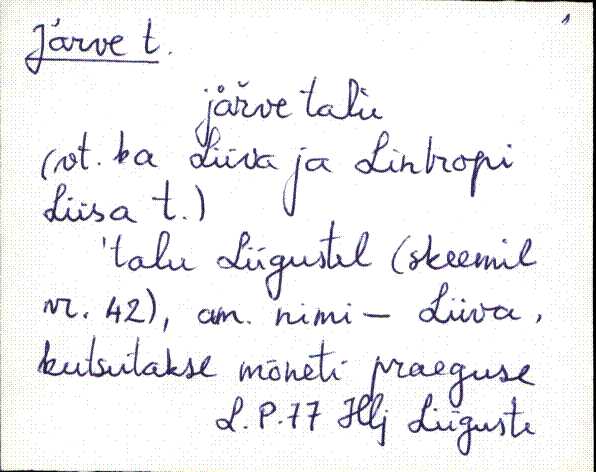 Järve t.
jäřve talu
(vt. ka Liiva ja Lintropi
Liisa t.)
'talu Liigustel (skeemil
nr. 42), am. nimi – Liiva,
kutsutakse mõneti praeguse
L.P. 77 Hlj Liiguste